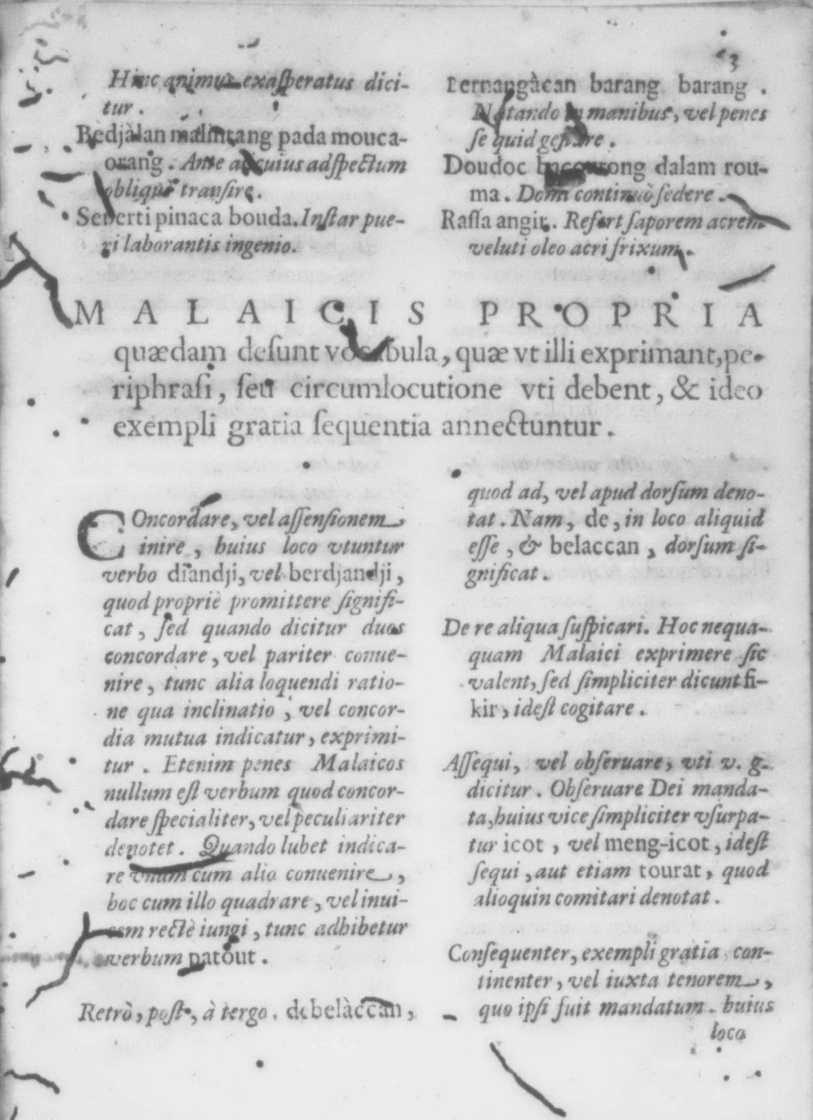 3
Hinc animus exasperatus dici-
tur.
Bedjàlan malintang pada mouca-
orang. Ante alicuius adspectum
obliquè transire.
Seperti pinaca bouda. Instar pue-
ri laborantis ingenio.
Pernangàcan barang barang.
Notando in manibus, vel penes
se quid gestare.
Doudoc dalam rou-
ma. Domi continuò sedere.
Rassa angit. Refert saporem acrem
veluti oleo acri frixum.
MALAICIS PROPRIA
quædam desunt vocabula, quæ vt illi exprimant, pe-
riphrasi, seu circumlocutione vti debent, & ideo
exempli gratia sequentia annectuntur.
COncordare, vel assensionem
inire, huius loco vtuntur
verbo diandji, vel berdjandji,
quod propriè promittere signifi-
cat, sed quando dicitur duos
concordare, vel pariter conue-
nire, tunc alia loquendi ratio-
ne qua inclinatio, vel concor-
dia mutua indicatur, exprimi-
tur. Etenim penes Malaicos
nullum est verbum quod concor-
dare specialiter, vel peculiariter
denotet. Quando lubet indica-
re vnum cum alio conuenire,
hoc cum illo quadrare, vel inui-
cem rectè iungi, tunc adhibetur
verbum patout.
Retrò, post, à tergo. debelàccan,
quod ad, vel apud dorsum deno-
tat. Nam, de, in loco aliquid
esse, & belaccan, dorsum si-
gnificat.
De re aliqua suspicari. Hoc nequa-
quam Malaici exprimere sic
valent, sed simpliciter dicunt fi-
kir, idest cogitare.
Assequi, vel obseruare, vti v. g.
dicitur. Obseruare Dei manda-
ta, huius vice simpliciter vsurpa-
tur icot, vel meng-icot, idest
sequi, aut etiam tourat, quod
alioquin comitari denotat.
Consequenter, exempli gratia con-
tinenter, vel iuxta tenorem,
quo ipsi fuit mandatum. huius
loco